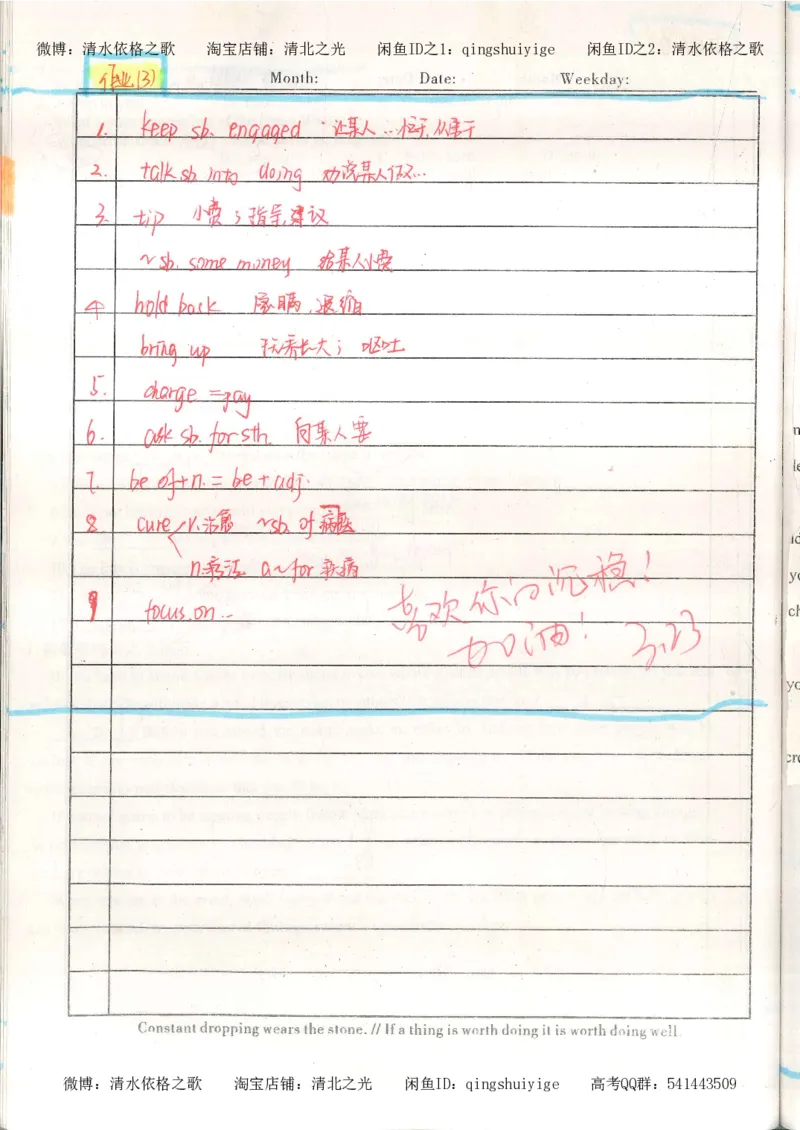 微博：清水依格之歌 淘宝店铺：清北之光 闲鱼ID之1：qingshuiyige 闲鱼ID之2：清水依格之歌
作业(3) Month: Date: Weekday:
1. keep sb. engaged 让某人…忙于,从事于
2. talk sb into doing 劝说某人做…
3. tip 小费；指导,建议
~ sb. some money 给某人小费
4 hold back 隐瞒,退缩
bring up 抚养长大；呕吐
5. charge = pay
6. ask sb. for sth. 向某人要
7. be of+n. = be + adj.
8. cure v.治愈 ~sb. of 疾病
n.疗法 a~for 疾病
9 focus on…
喜欢你的沉稳！
加油！ 3.23
Constant dropping wears the stone. // If a thing is worth doing it is worth doing well.
微博：清水依格之歌 淘宝店铺：清北之光 闲鱼ID：qingshuiyige 高考QQ群：541443509